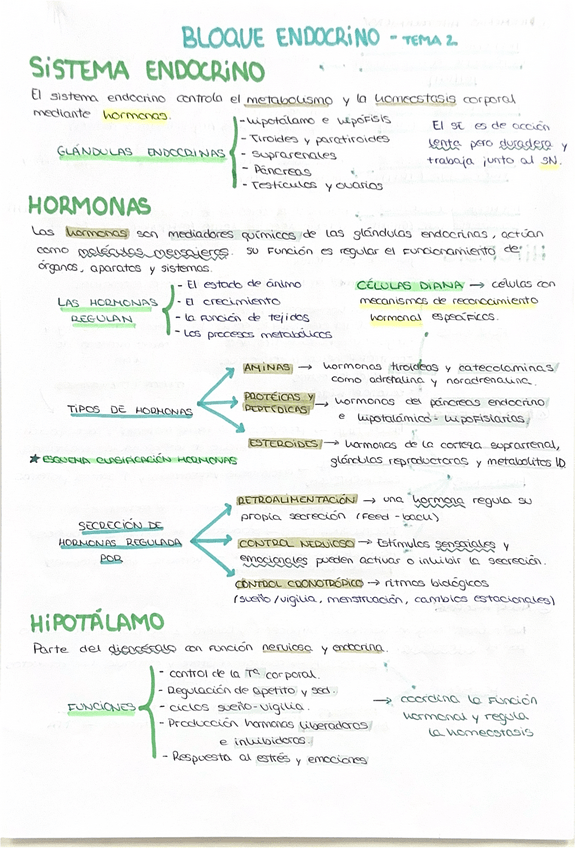 BLOQUE ENDOCRINO - TEMA 2
SISTEMA ENDOCRINO
El sistema endocrino controla el metabolismo y la homeostasis corporal
mediante hormonas.
GLÁNDULAS ENDOCRINAS
- Hipotálamo e hipófisis
- Tiroides y paratiroides
- Suprarrenales
- Páncreas
- Testículos y ovarios
El SE es de acción
lenta pero duradera y
trabaja junto al SN.
HORMONAS
Las hormonas son mediadores químicos de las glándulas endocrinas, actúan
como moléculas mensajeros. Su función es regular el funcionamiento de
órganos, aparatos y sistemas.
LAS HORMONAS
REGULAN
- El estado de ánimo
- El crecimiento
- La función de tejidos
- Los procesos metabólicos
CÉLULAS DIANA → células con
mecanismos de reconocimiento
hormonal específicos.
TIPOS DE HORMONAS
AMINAS → hormonas tiroideas y catecolaminas
como adrenalina y noradrenalina.
PROTÉICAS Y
PEPTÍDICAS → Hormonas del páncreas endocrino
e hipotalámico-hipofisiarias
ESTEROIDES → Hormonas de la corteza suprarrenal,
glándulas reproductoras y metabolitos D
★ ESQUEMA CLASIFICACIÓN HORMONAS
SECRECIÓN DE
HORMONAS REGULADA
POR
RETROALIMENTACIÓN → una hormona regula su
propia secreción (feed-back)
CONTROL NERVIOSO → Estímulos sensoriales y
emocionales pueden activar o inhibir la secreción.
CONTROL CRONOTRÓPICO → ritmos biológicos
(sueño/vigilia, menstruación, cambios estacionales)
HIPOTÁLAMO
Parte del diencéfalo con función nerviosa y endocrina.
FUNCIONES
- control de la Tª corporal.
- Regulación de apetito y sed.
- ciclos sueño-vigilia.
- Producción hormonas liberadoras
e inhibidoras.
- Respuesta al estrés y emociones
→ coordina la función
hormonal y regula
la homeostasis